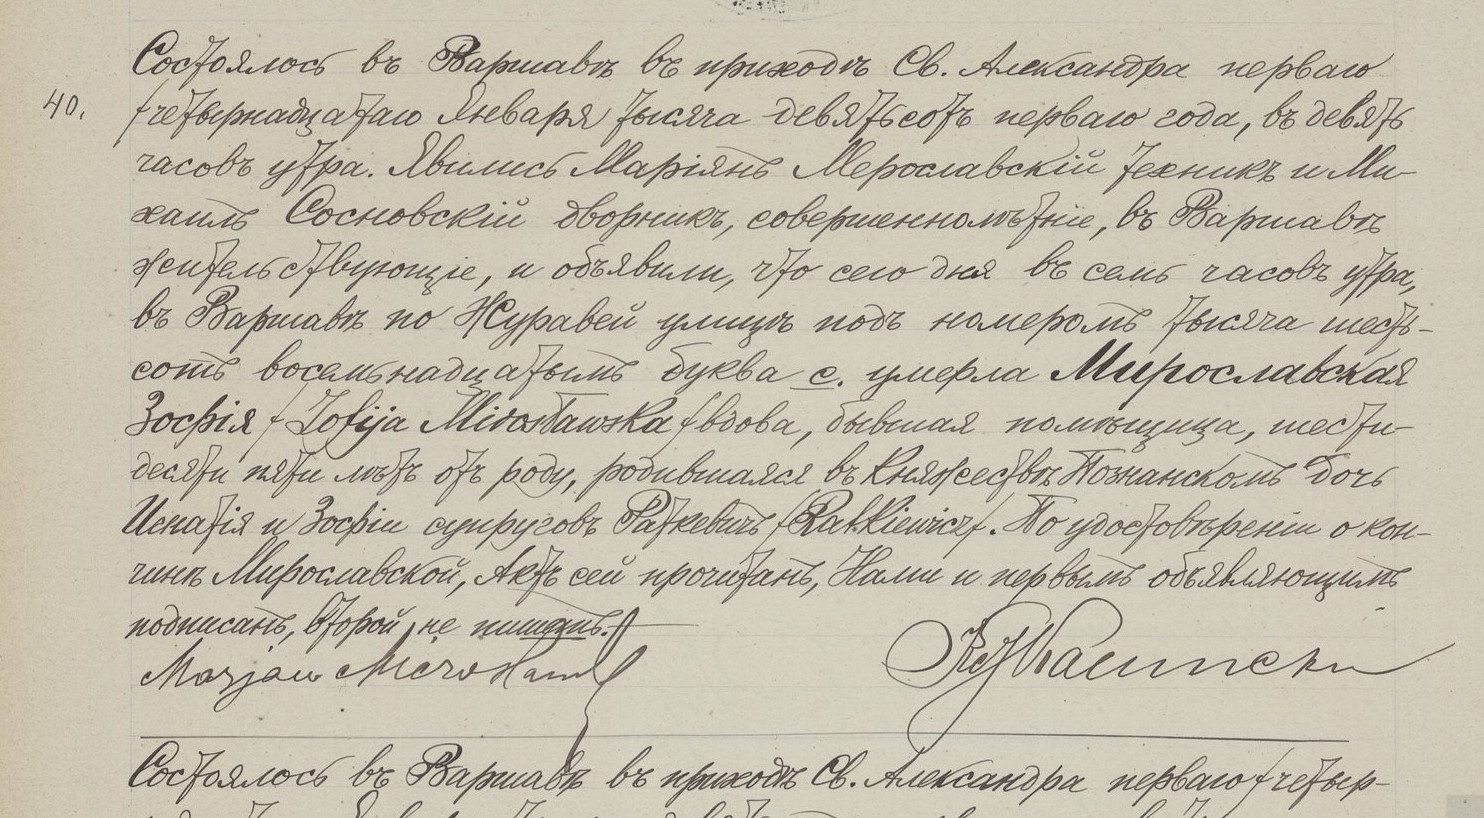 Состоялось въ Варшавѣ въ приходѣ Св. Александра перваго
40.
/четырнадцатаго Января тысяча девятьсотъ перваго года, въ девять
часовъ утра. Явились Маріянъ Мерославскій техникъ и Ми-
хаилъ Сосновскій дворникъ, совершеннолѣтніе, въ Варшавѣ
жительствующіе, и объявили, что сего дня въ семь часовъ утра,
въ Варшавѣ по Журавей улицѣ подъ номеромъ тысяча шесть-
сотъ восемьнадцатымъ буква с. умерла Мирославская
Зофія /Zofija Mirosławska/ вдова, бывшая помѣщица, шести-
десяти пяти лѣтъ отъ роду, родившаяся въ Княжествѣ Познанскомъ дочь
Игнатія и Зофіи супруговъ Раткевичъ /Ratkiewicz/. По удостовѣреніи о кон-
чинѣ Мирославской, Актъ сей прочитанъ, Нами и первымъ объявляющимъ
подписанъ, второй не пишетъ.
Marjan
Состоялось въ Варшавѣ въ приходѣ Св. Александра перваго /четыр-